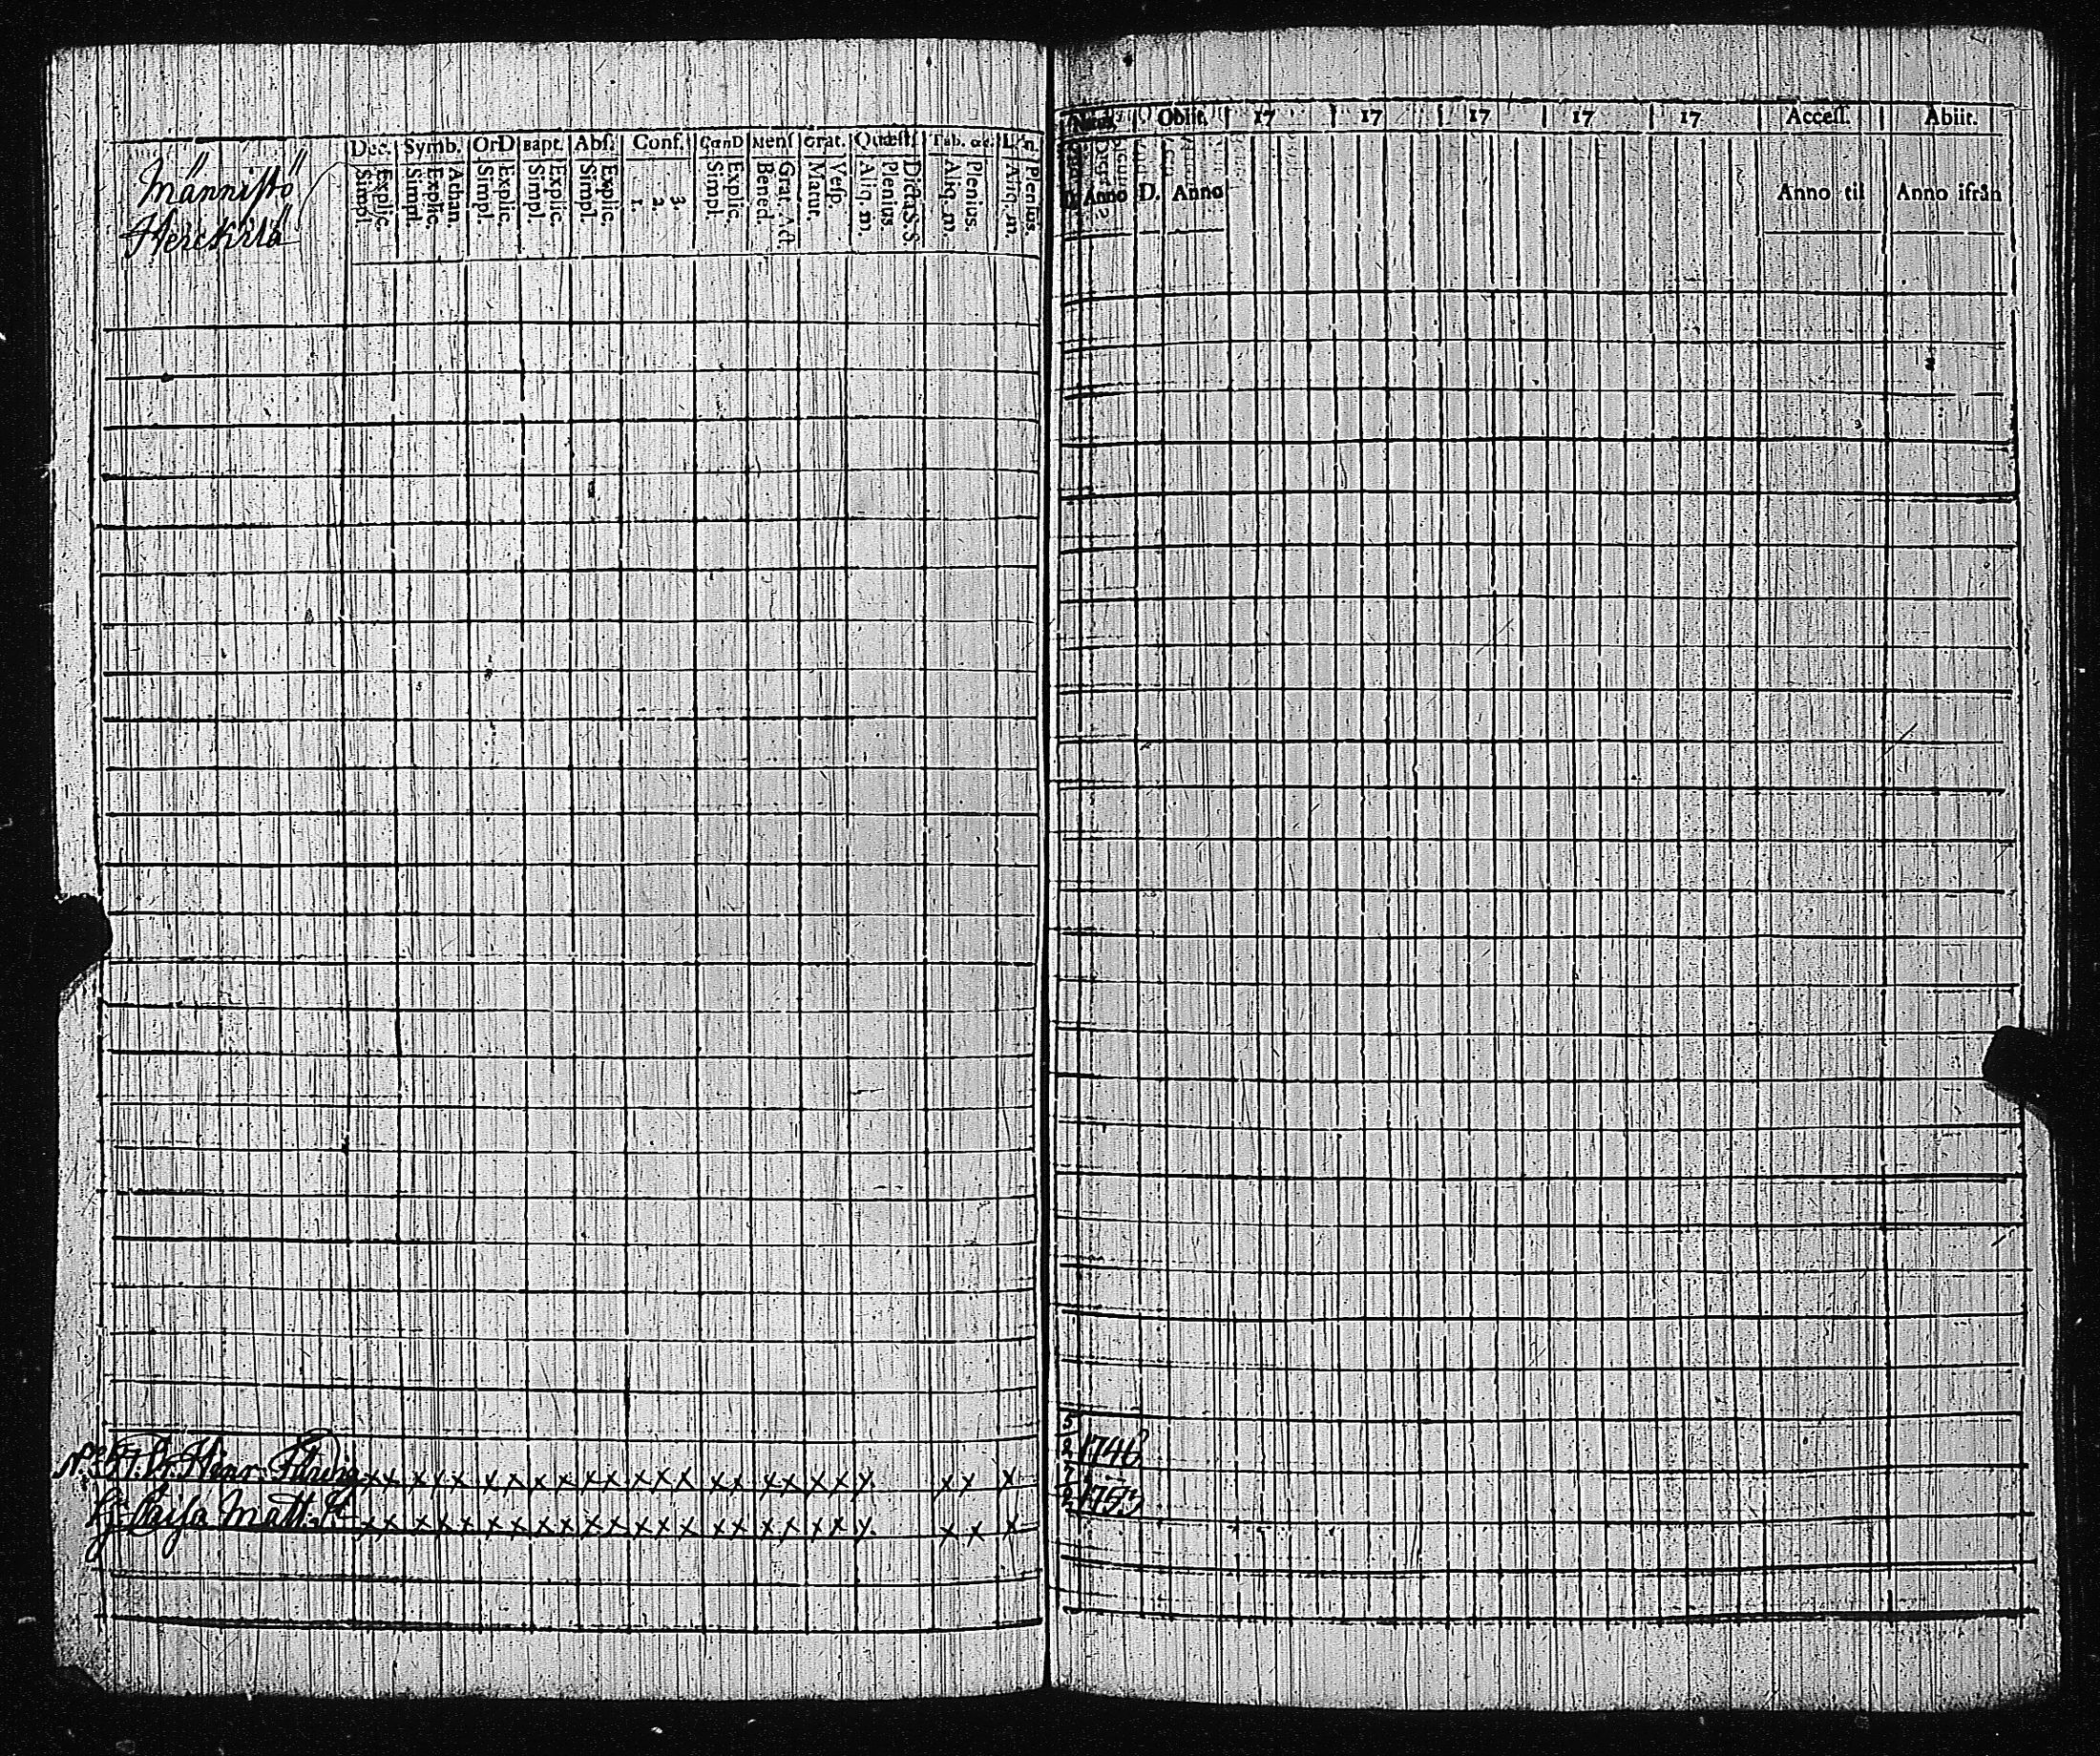 Männistö
Herckirla
Dec. Symb. OrD Bapt. Abs. Conf. CœnD Mens Grat. Quæst. Tab. œc.
Simpl. Explic. Simpl. Explic. Athan. Simpl. Explic. Simpl. Explic. Simpl. Explic. 1. 2. 3. Simpl. Explic. Bened. Grat. Act. Matut. Vesp. Aliq. m. Plenius Dicta S.S. Aliq. m. Plenius. Aliq. m. Plenius.
Hinr.
x x x x x x x x x x x x x x x x x x x x x x x x
Caisa Matt. Dr
x x x x x x x x x x x x x x x x x x x x x x x x
Obiit. 17 17 17 17 17 Access. Abiit.
D. Anno D. Anno Anno til Anno ifrån
5
2 1746
7
2 1753